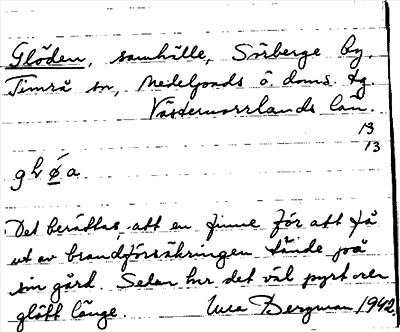 Glöden, samhälle, Sörberge by,
Timrå sn, Medelpads ö. doms. tg
Västernorrlands län.
13
13
Det berättas, att en finne för att få
ut av brandförsäkringen tände på
sin gård. Sedan har det väl pyrt och
glött länge. Bergman 1942